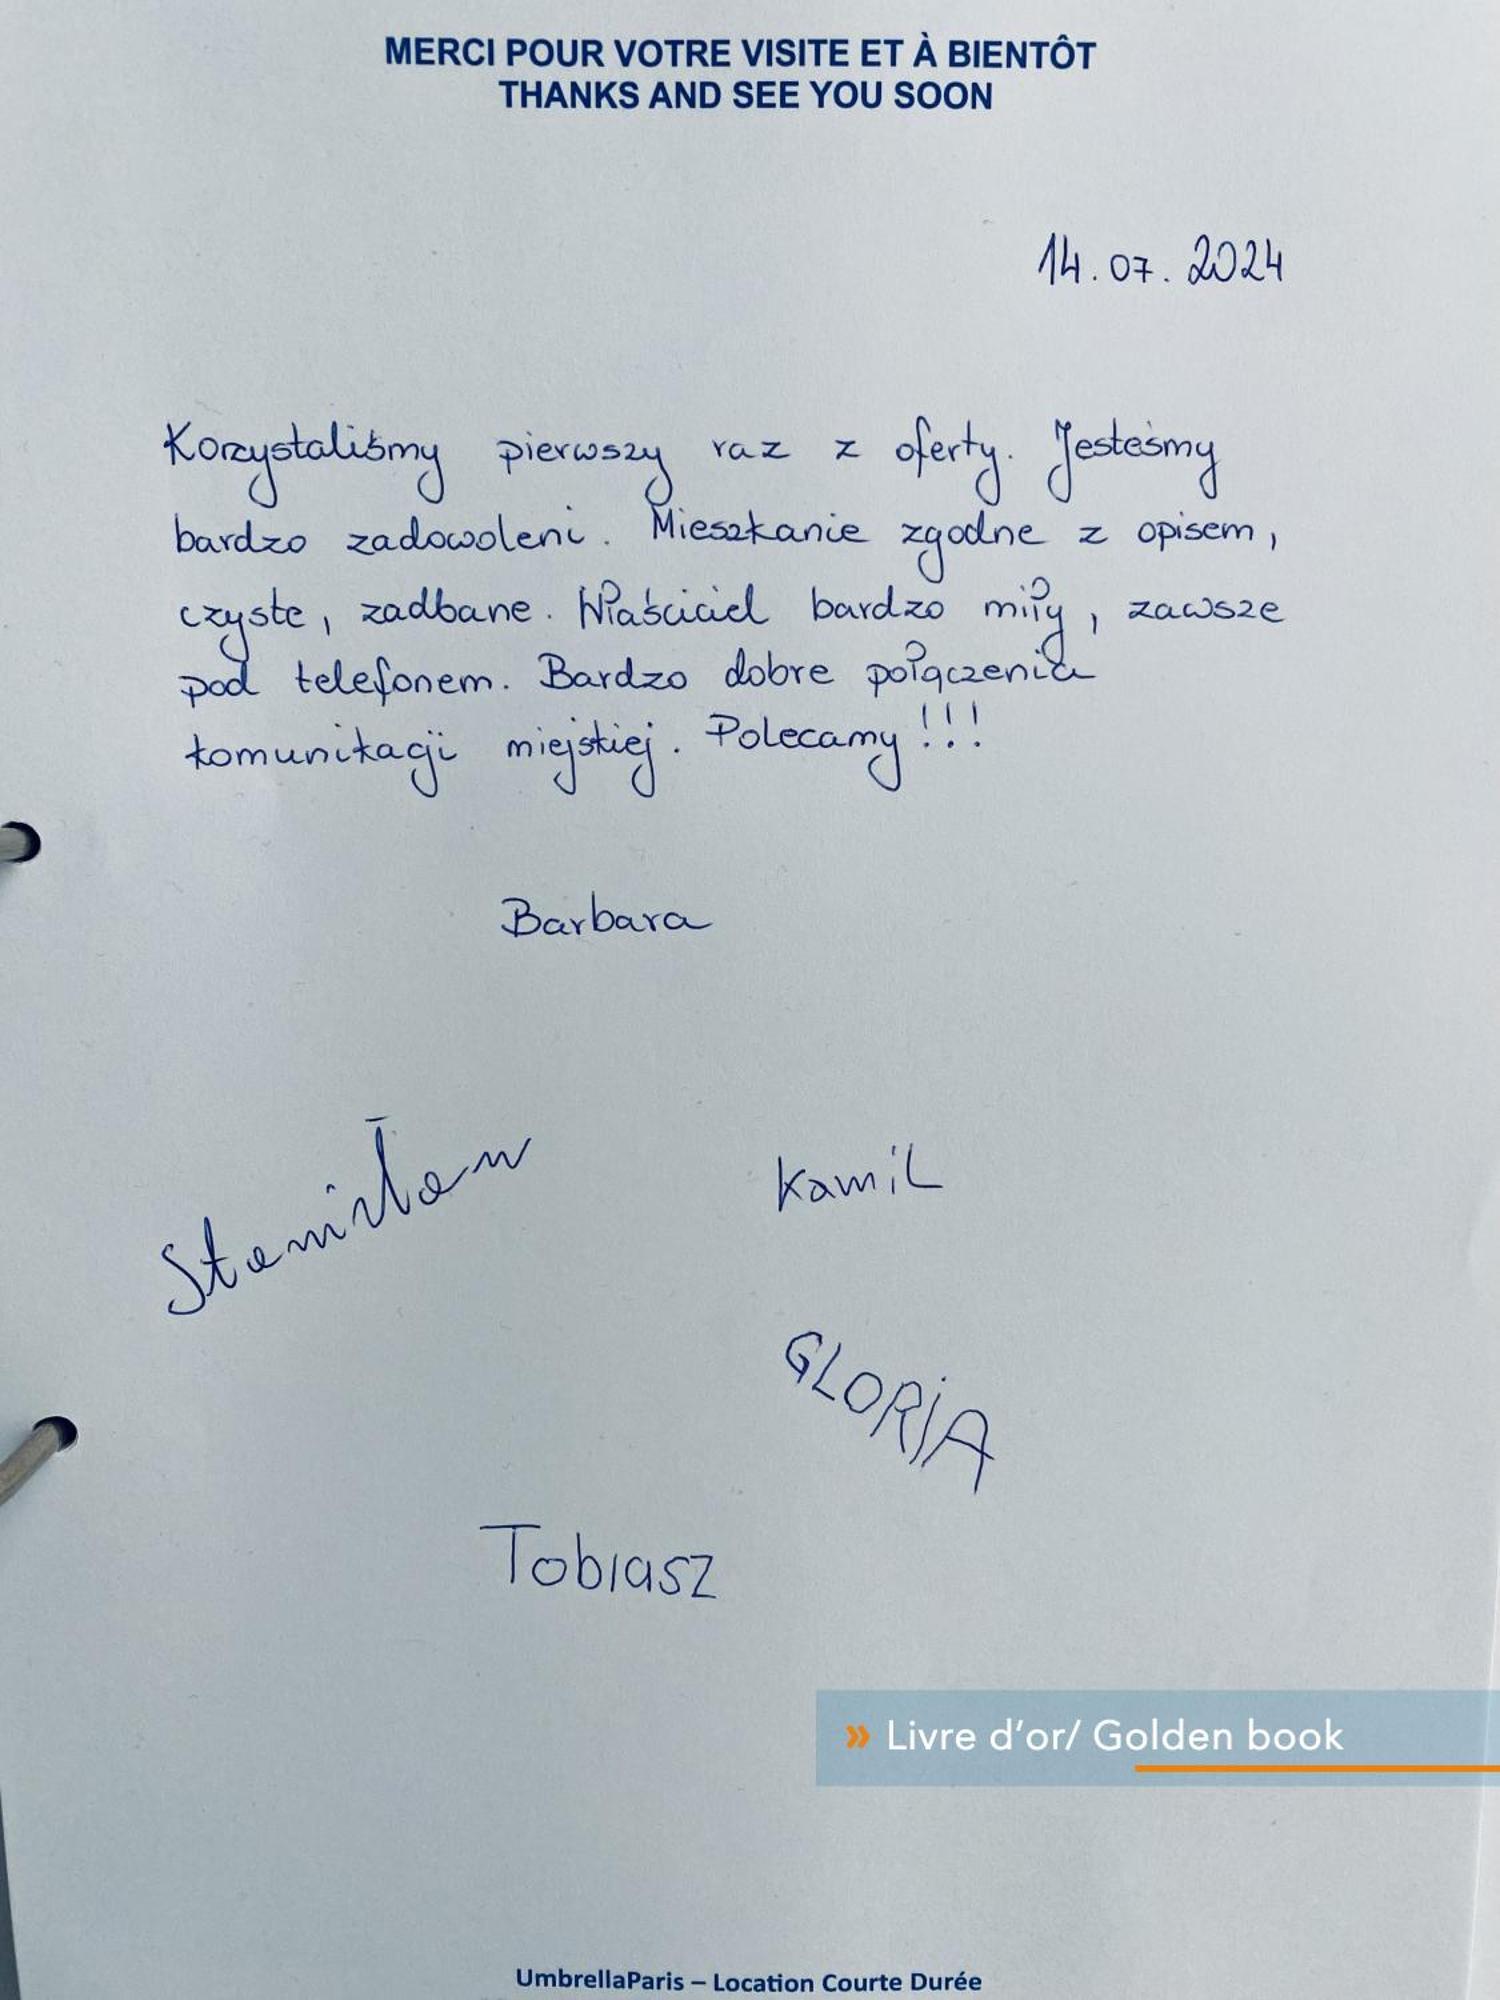 MERCI POUR VOTRE VISITE ET À BIENTÔT
THANKS AND SEE YOU SOON
14.07.2024
Korzystaliśmy pierwszy raz z oferty. Jesteśmy
bardzo zadowoleni. Mieszkanie zgodne z opisem,
czyste, zadbane. Właściciel bardzo miły, zawsze
pod telefonem. Bardzo dobre połączenia
komunikacji miejskiej. Polecamy!!!
Barbara
Stanisław
Kamil
GLORIA
Tobiasz
» Livre d'or/ Golden book
UmbrellaParis – Location Courte Durée